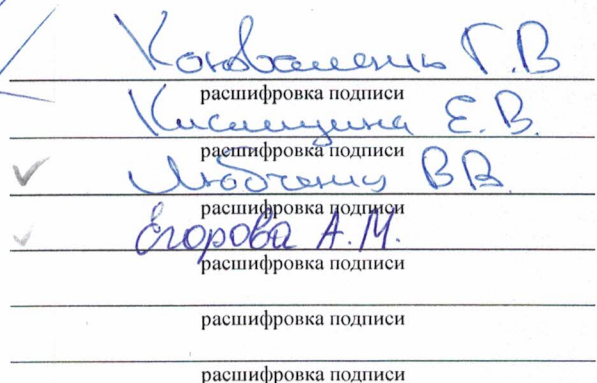 Коноваленко Г.В
расшифровка подписи
Кислицина Е.В.
расшифровка подписи
Любченко В.В.
расшифровка подписи
Егорова А.М.
расшифровка подписи
расшифровка подписи
расшифровка подписи